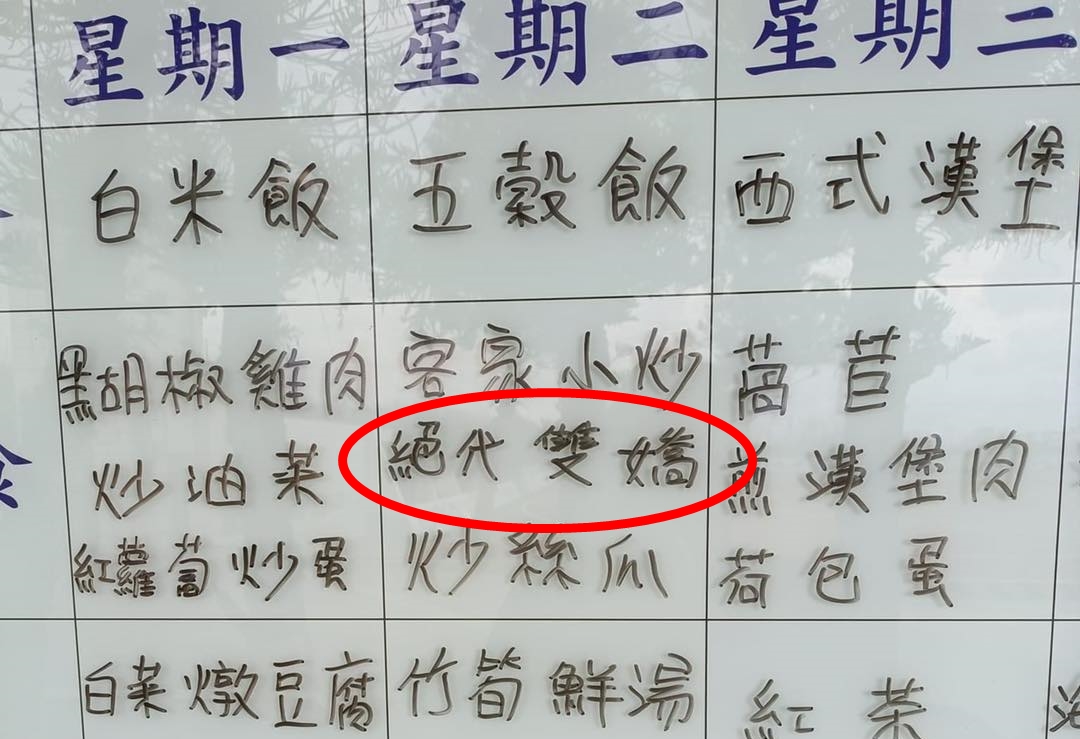 星期一 星期二 星期三
白米飯 五穀飯 西式漢堡
黑胡椒雞肉 客家小炒 萵苣
炒油菜 絕代雙嬌 煎漢堡肉
紅蘿蔔炒蛋 炒絲瓜 荷包蛋
白菜燉豆腐 竹筍鮮湯 紅茶